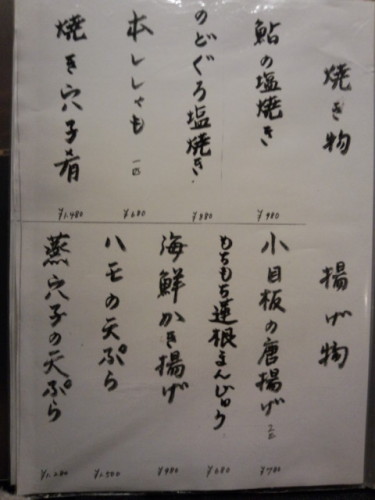 焼き物
鮎の塩焼き
¥980
のどぐろ塩焼き
¥880
本ししゃも 一匹
¥680
焼き穴子肴
¥1,480
揚げ物
小目板の唐揚げ 二匹
¥780
もちもち蓮根まんじゅう
¥680
海鮮かき揚げ
¥980
ハモの天ぷら
¥1,500
蒸穴子の天ぷら
¥1,280